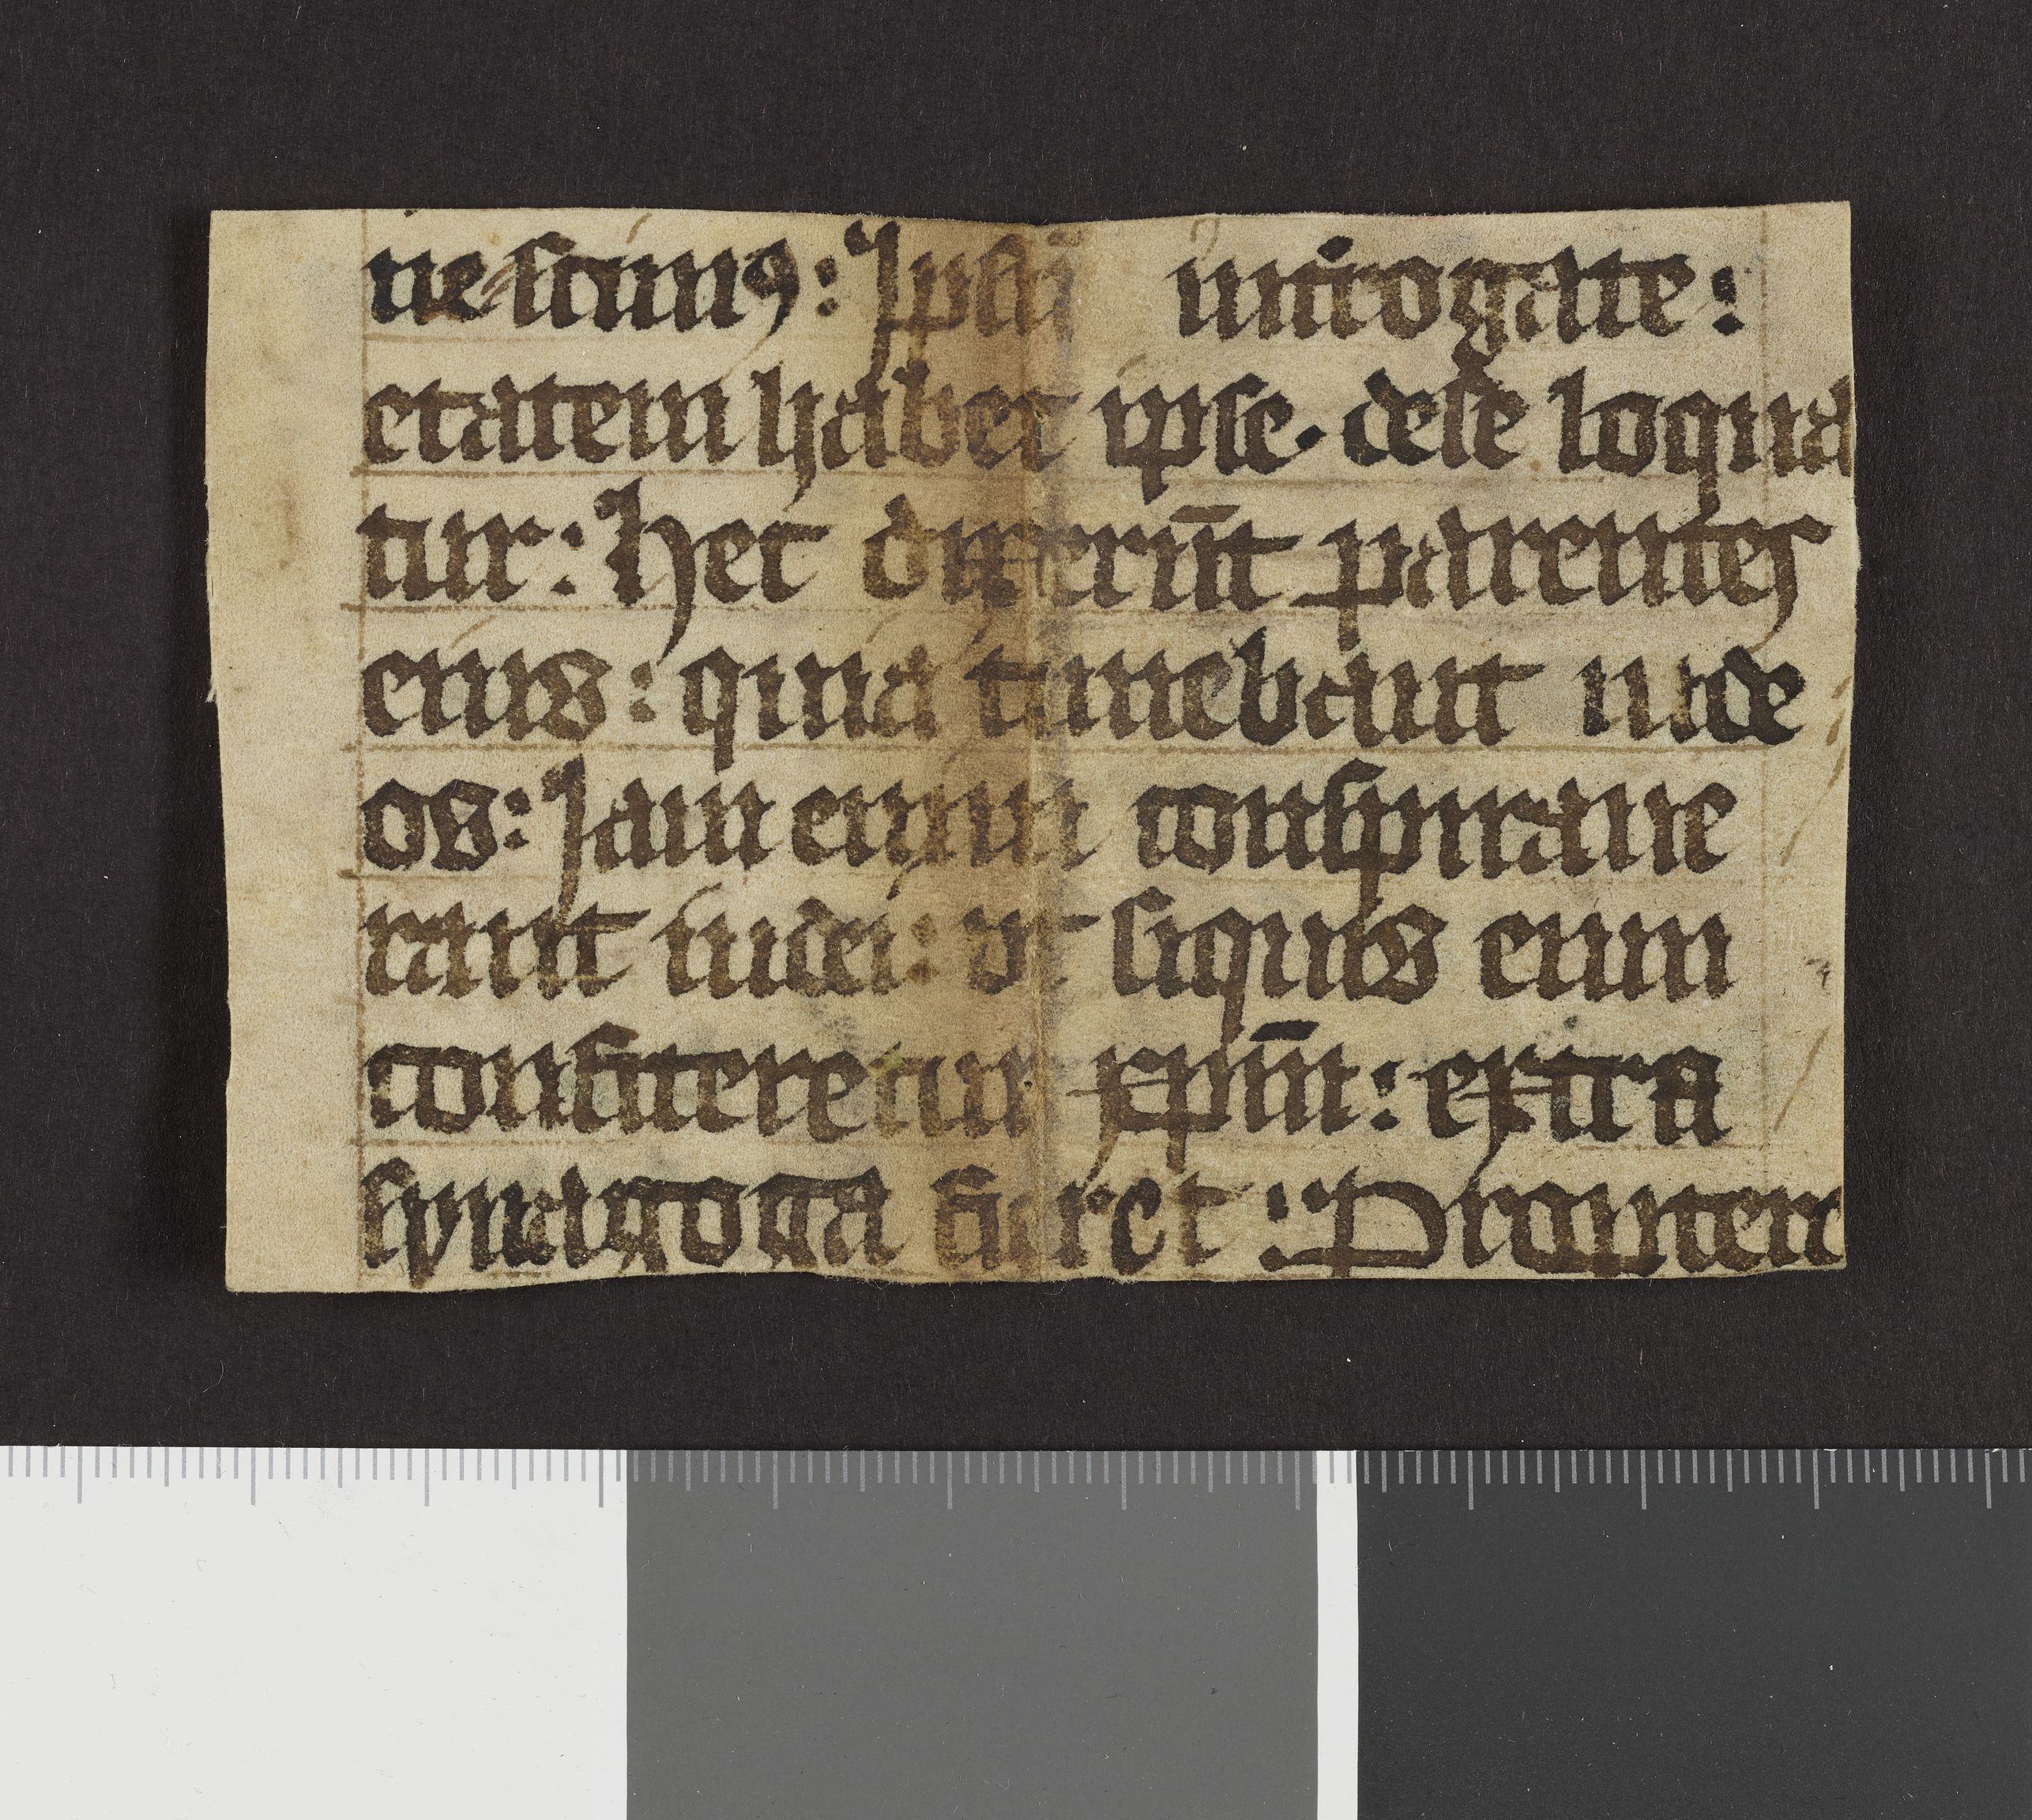 nescimꝰ: Ipsū int̄rogate:
etatem habet ipse. dese loqua
tur: Hec dixerūt parentes
eius: quia timebant iude
os: Jam enim conspiraue
rant iudei: ut siquis eum
confiteretur xpm̄: extra
synagoga fieret: Propterea